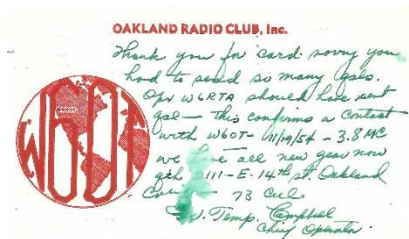 OAKLAND RADIO CLUB, Inc.
Thank you for card sorry you
had to send so many qsls.
Opr W6RTA should have sent
qsl - this confirms a contact
with W6OT - 11/19/54 - 3.8 MC
we have all new gear now
111 - E. 14th st. Oakland
73 Cul
Temp. Campbell
Chief Operator
W6OT